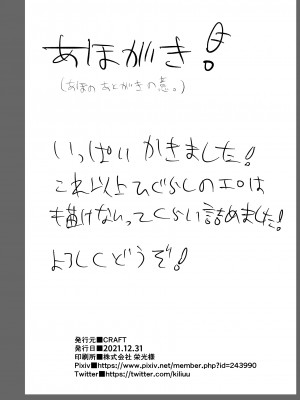 あほがき！
(あほのあとがきの意。)
いっぱいかきました！
これ以上ひぐらしのエロは
も描けないってくらい詰めました！
よろしくどうぞ！
発行元■CRAFT
発行日■2021.12.31
印刷所■株式会社 栄光様
Pixiv■https://www.pixiv.net/member.php?id=243990
Twitter■https://twitter.com/kiliuu